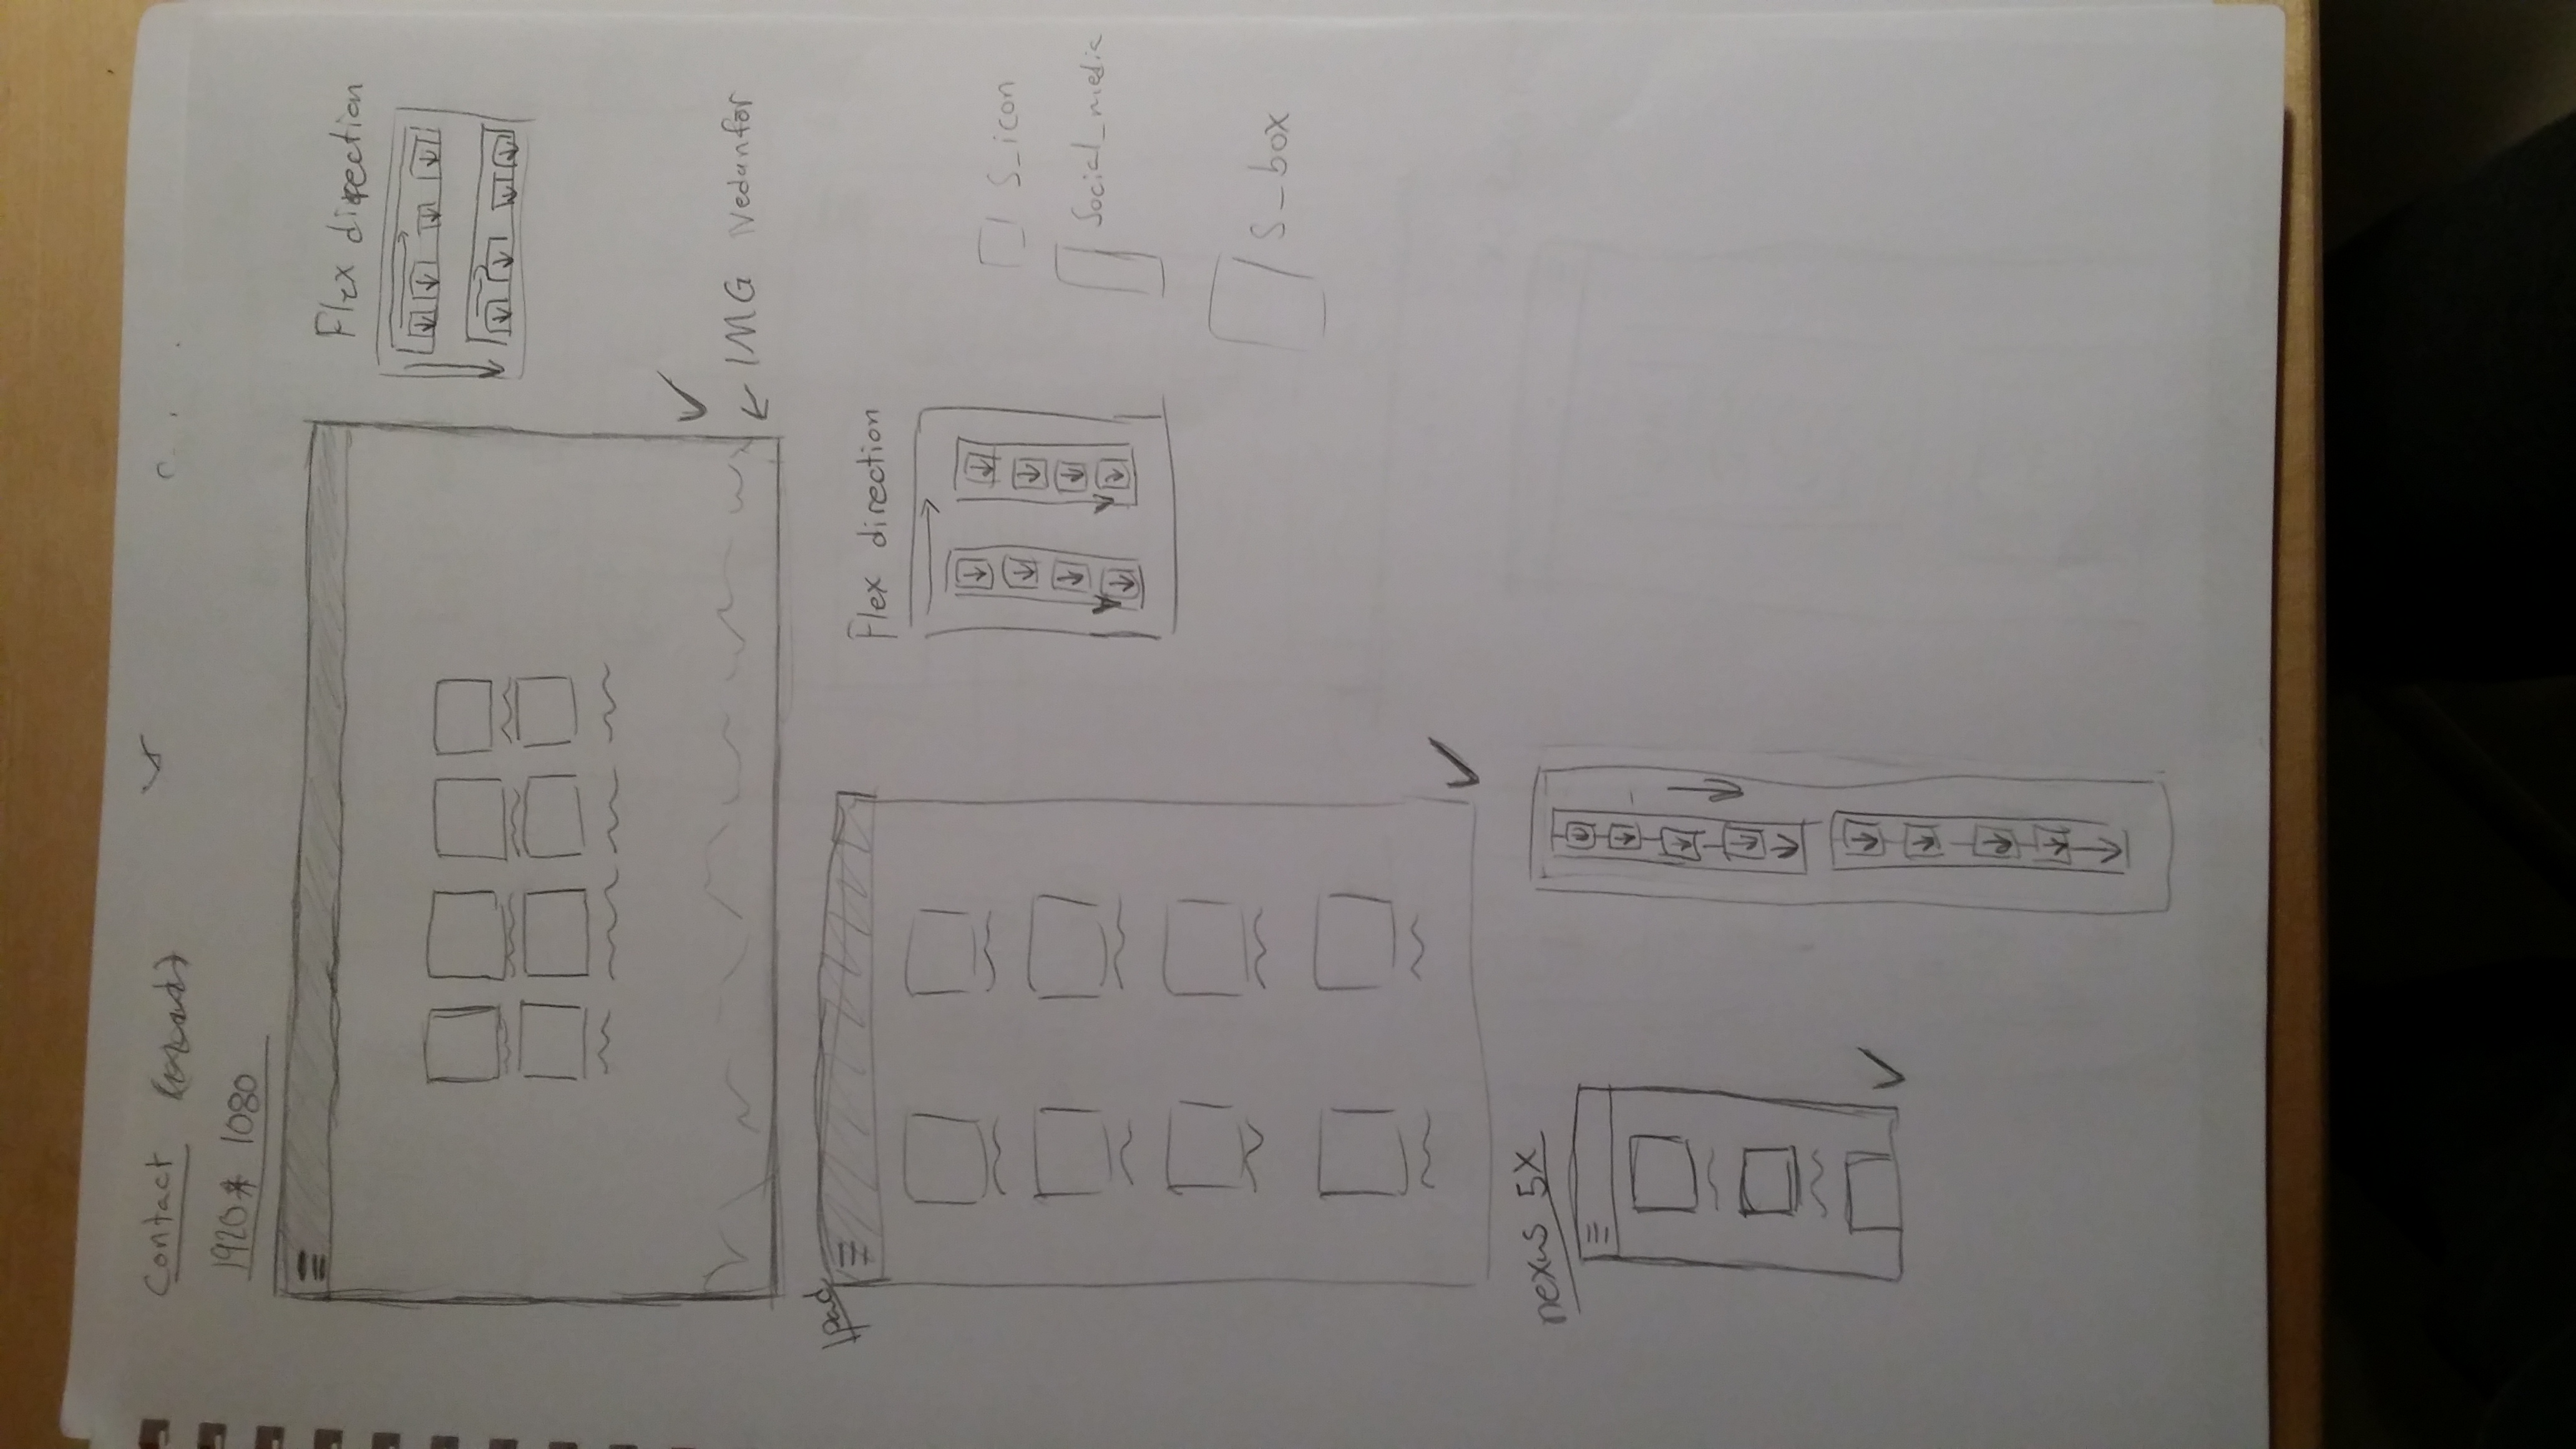 Contact
1920* 1080
Flex direction
IMG Nedanför
Ipad
Flex direction
S_icon
Social_media
S_box
nexus 5X